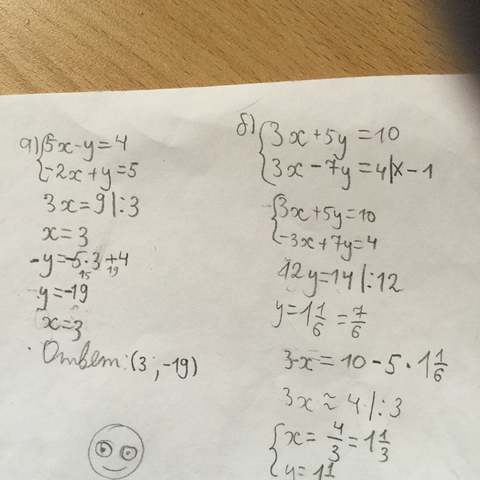 а) { 5x-y=4
-2x+y=5
3x=9 |:3
x=3
-y=-5·3+4
15 19
-y=-19
x=3
Ответ: (3; -19)
б) { 3x+5y=10
3x-7y=4 |x-1
{ 3x+5y=10
-3x+7y=4
12y=14 |:12
y=1 1/6 = 7/6
3x=10-5·1 1/6
3x≈4 |:3
{ x= 4/3 =1 1/3
y=1 1